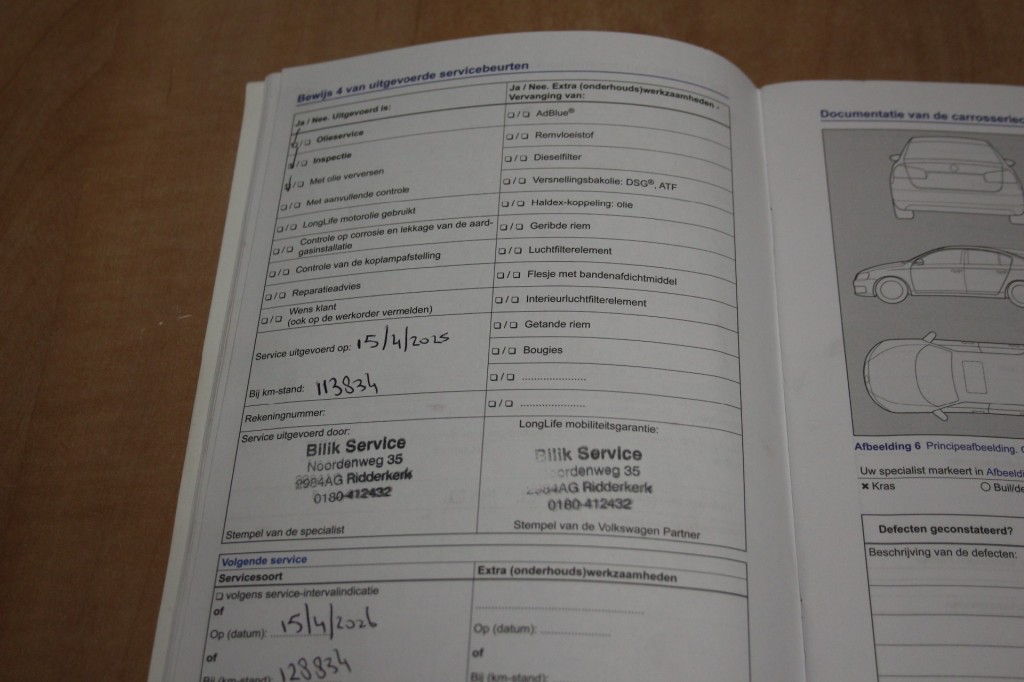 Bewijs 4 van uitgevoerde servicebeurten
Ja / Nee. Uitgevoerd is:
❏/❏ Olieservice
❏/❏ Inspectie
❏/❏ Met olie verversen
❏/❏ Met aanvullende controle
❏/❏ LongLife motorolie gebruikt
❏/❏ Controle op corrosie en lekkage van de aard-
gasinstallatie
❏/❏ Controle van de koplampafstelling
❏/❏ Reparatieadvies
❏/❏ Wens klant
(ook op de werkorder vermelden)
Service uitgevoerd op: 15/4/2025
Bij km-stand: 113834
Rekeningnummer:
Service uitgevoerd door:
Bilik Service
Noordenweg 35
2984AG Ridderkerk
0180-412432
Stempel van de specialist
Ja / Nee. Extra (onderhouds)werkzaamheden.
Vervanging van:
❏/❏ AdBlue®
❏/❏ Remvloeistof
❏/❏ Dieselfilter
❏/❏ Versnellingsbakolie: DSG®, ATF
❏/❏ Haldex-koppeling: olie
❏/❏ Geribde riem
❏/❏ Luchtfilterelement
❏/❏ Flesje met bandenafdichtmiddel
❏/❏ Interieurluchtfilterelement
❏/❏ Getande riem
❏/❏ Bougies
❏/❏ .....................
❏/❏ .....................
LongLife mobiliteitsgarantie:
Bilik Service
Noordenweg 35
2984AG Ridderkerk
0180-412432
Stempel van de Volkswagen Partner
Volgende service
Servicesoort
❏ volgens service-intervalindicatie
of
Op (datum): 15/4/2026
of
Bij (km-stand): 128834
Extra (onderhouds)werkzaamheden
Op (datum): .....................
of
Bij (km-stand):
Documentatie van de carrosserie
Afbeelding 6 Principeafbeelding.
Uw specialist markeert in Afbeeld
✖ Kras
○ Buil/de
Defecten geconstateerd?
Beschrijving van de defecten: